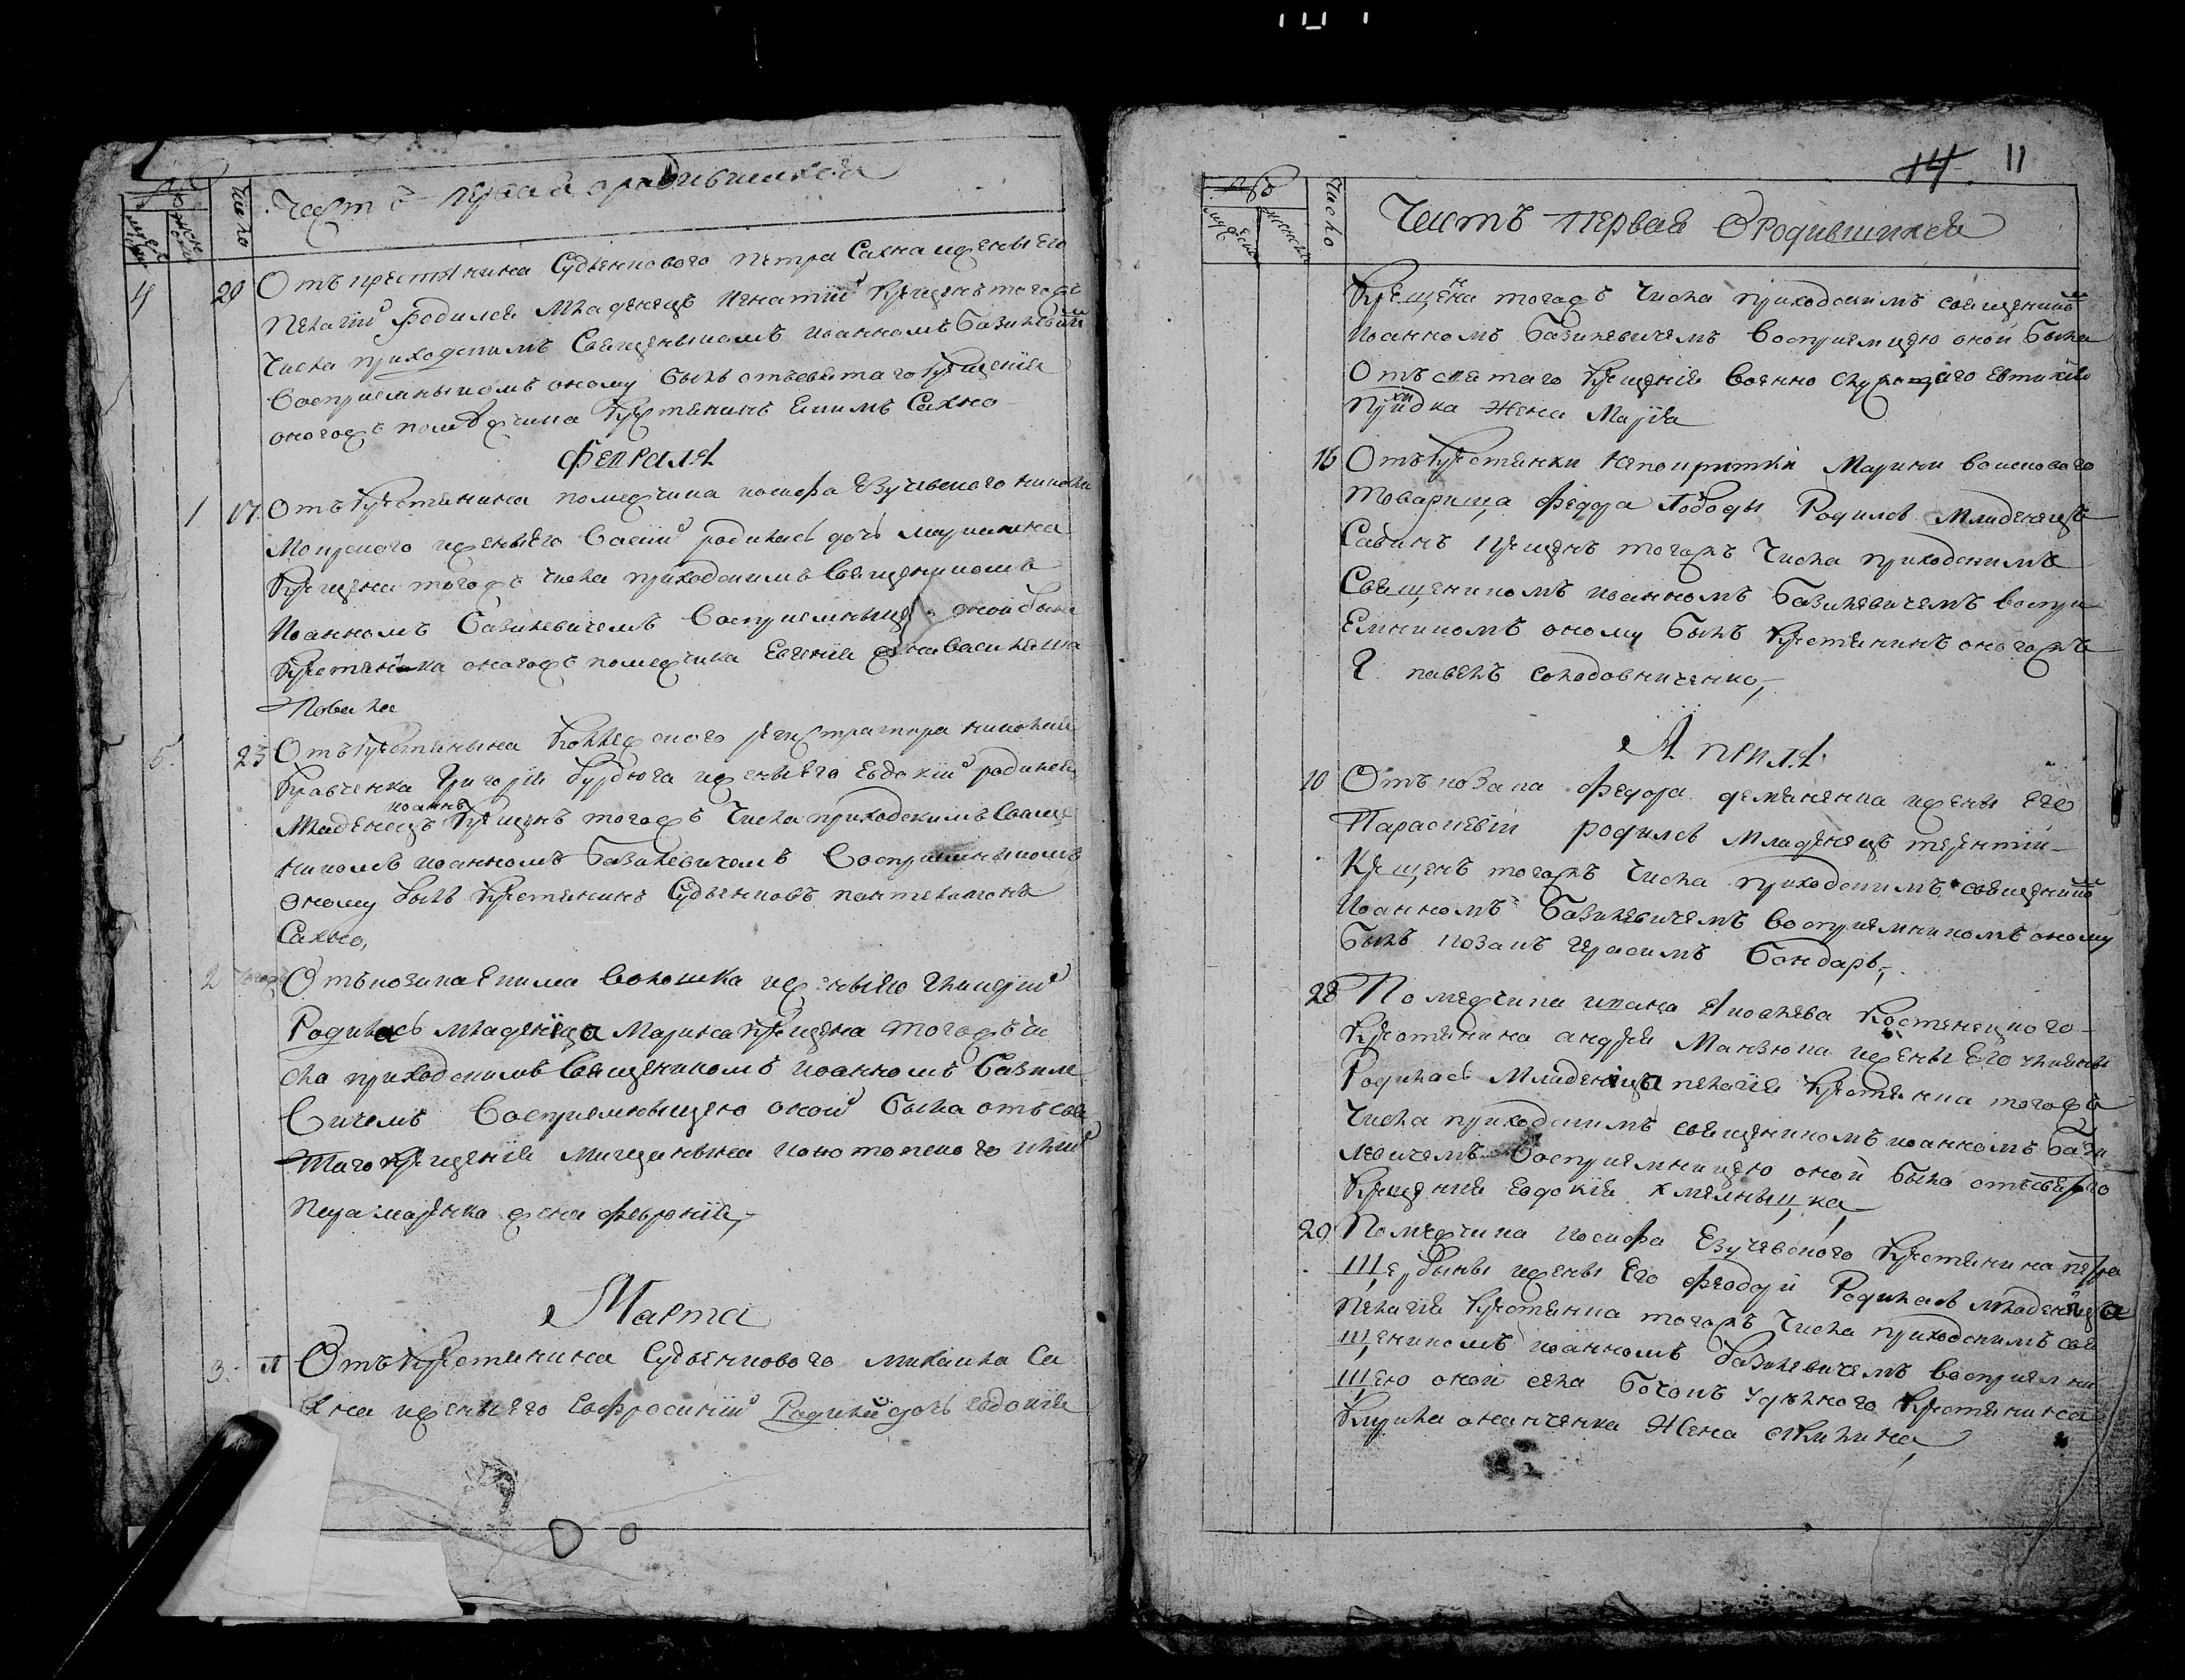 Часть первая о родившихся
№
мужеска
женска
Число
4 29 Отъ крестянина Судьенкового Петра Сахна жены Его
Пелагии родился младенецъ Игнатий крещенъ тогожъ
числа приходскимъ священыкомъ иоанномъ Базилевич
восприемныкомъ оному былъ отъ святаго крещения
оногожъ помѣжчика крестянинъ Екимъ Сахно
Февраля
1 17 Отъ крестянина помежчика иосифа Езучевского
жены его родилась дочь марианна
крещена тогожъ числа приходскимъ священникомъ
Иоанномъ Базилевичемъ восприемныце оной была
крестянка оногожъ помежчика Евгения жена василя
Ковала
5 23 Отъ крестянына колежского регистратора николая
Кравченка Григория Бурдюга жены Его Евдокии родился
иоаннъ
младенецъ крещенъ тогожъ числа приходскимъ свяще
никомъ иоанномъ Базилевичемъ восприемныкомъ
оному былъ крестянинъ Судьенковъ пантелимонъ
Сахно,
2 Отъ козака Екима Волошка жены его Гликерии
Родилась младеница Марина крещена тогожъ чи
сла приходскимъ священикомъ иоанномъ Базиле
вичемъ восприемныцею оной была отъ свя
таго крещения мищаныка конотопского илии
жена феврония,
Марта
3 11 Отъ крестянина Судьенкового михаила Са
хна жены Его Ефросинии Родилась дочь евдокия
14 11
Часть первая О Родившихся
№
мужеска
женска
Число
крещена тогожъ числа приходскимъ священик
Иоанномъ Базилевичемъ восприемицею оной была
Отъ святаго крещения военно служащего евтихия
жена Мария
16 Отъ крестянки Марини воискового
товарища Федора Лободы Родился младенецъ
Савинъ крещенъ тогожъ числа приходскимъ
Священикомъ иоанномъ Базилевичемъ воспри
Емникомъ оному былъ крестянинъ оногожъ
Л. павелъ солодовниченко,
Априля
10 Отъ козака Федора демяненка жены Его
Параскевии родился младенецъ терентий
крещенъ тогожъ числа приходскимъ священик
Иоанномъ Базилевичемъ восприемникомъ оному
былъ козакъ герасимъ Бондарь,
28 Помежчика ивана Костенецкого
крестянина андрея Манзюка жены Его улияны
Родилась младеница пелагия крестянка тогожъ
числа приходскимъ священикомъ иоанномъ Бази
левичемъ восприемницею оной была отъ святаго
крещения евдокия хмелныцка,
29 Помежчика иосифа Езучевского крестянина петра
Щербины жены Его феодори Родилась младеница
пелагия крестянка тогожъ числа приходскимъ свя
щеникомъ иоанномъ Базилевичемъ восприемни
цею оной крестянина
Кирила жена акилина,